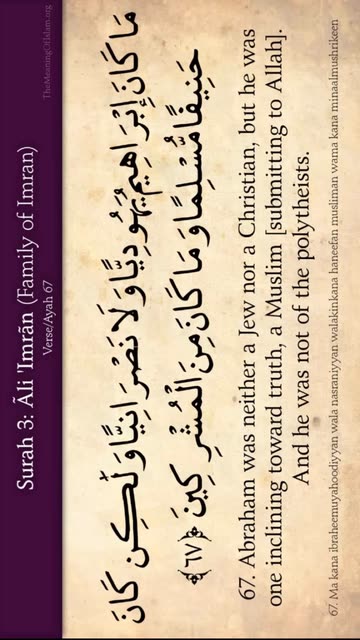 Surah 3: Ãli 'Imrān (Family of Imran)
Verse/Ayah 67
TheMeaningOfIslam.org
مَا كَانَ إِبْرَاهِيمُ يَهُودِيًّا وَلَا نَصْرَانِيًّا وَلَٰكِن كَانَ
حَنِيفًا مُّسْلِمًا وَمَا كَانَ مِنَ الْمُشْرِكِينَ ﴿٦٧﴾
67. Abraham was neither a Jew nor a Christian, but he was
one inclining toward truth, a Muslim [submitting to Allah].
And he was not of the polytheists.
67. Ma kana ibraheemu yahoodiyyan wala nasraniyyan walakin kana haneefan musliman wama kana mina almushrikeen